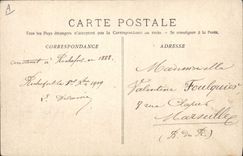 CARTE POSTALE
Tous les Pays étrangers n'acceptent pas la Correspondance au recto. - Se renseigner à la Poste.
CORRESPONDANCE
ADRESSE
construit à Rochefort en 1888.
Rochefort le 1909
Mademoiselle
Valentine Foulquier
8 rue
Marseille
(B. du R.)